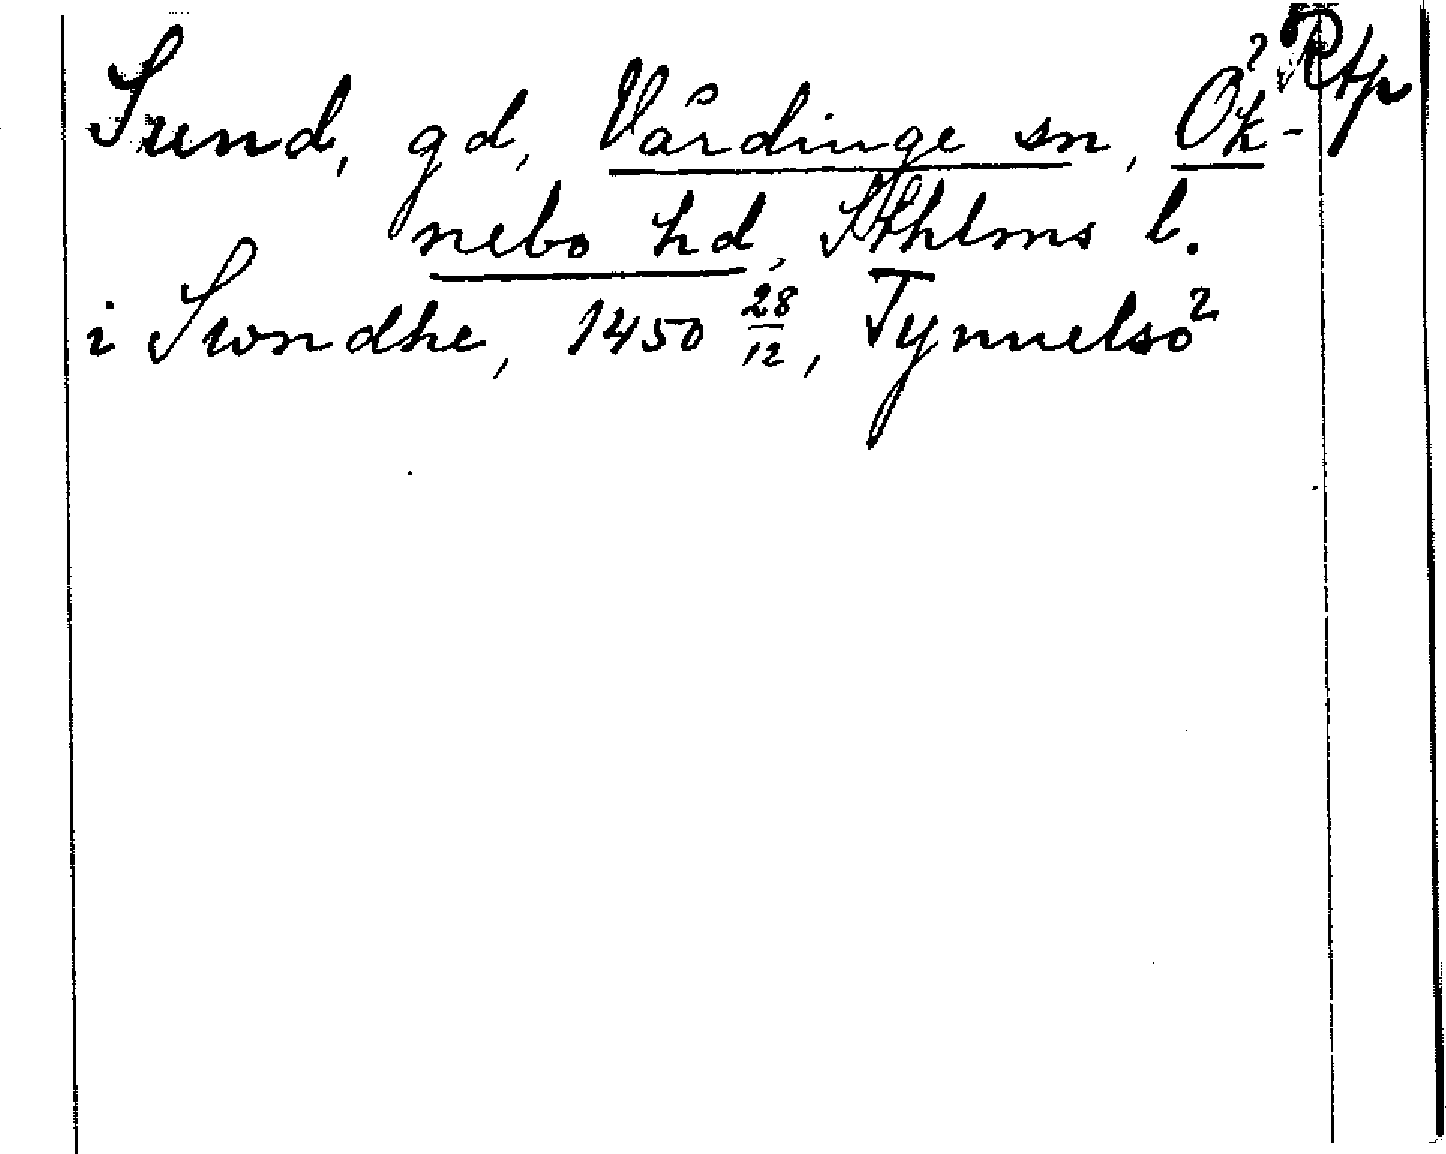 Rtp
Sund, gd, Vårdinge sn, Ök-
nebo hd, Sthlms l.
i Swndhe, 1450 28/12, Tynnelsö